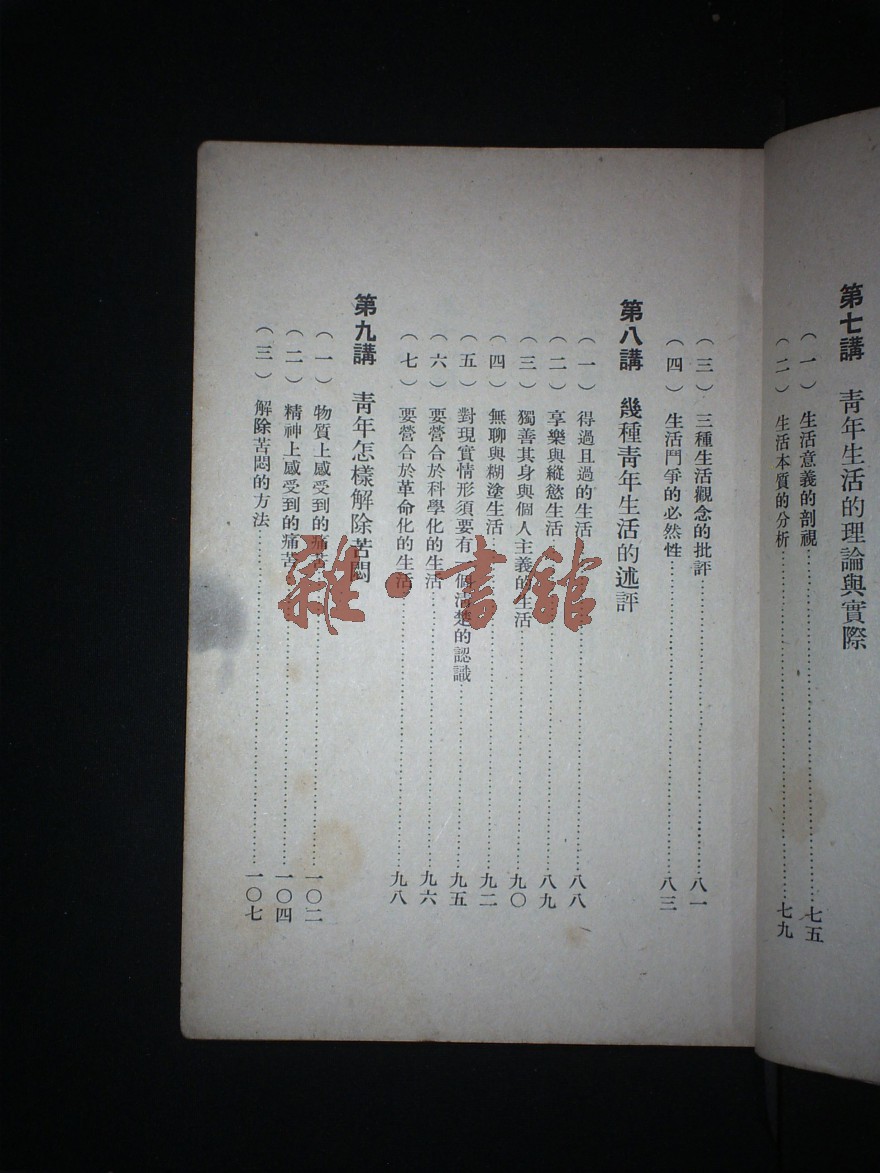 第七講　青年生活的理論與實際
（一）生活意義的剖視…………七五
（二）生活本質的分析…………七九
（三）三種生活觀念的批評…………八一
（四）生活鬥爭的必然性…………八三
第八講　幾種青年生活的述評
（一）得過且過的生活…………八八
（二）享樂與縱慾生活…………八九
（三）獨善其身與個人主義的生活…………九〇
（四）無聊與糊塗生活…………九二
（五）對現實情形須要有一個清楚的認識…………九五
（六）要營合於科學化的生活…………九六
（七）要營合於革命化的生活…………九八
第九講　青年怎樣解除苦悶
（一）物質上感受到的痛苦…………一〇二
（二）精神上感受到的痛苦…………一〇四
（三）解除苦悶的方法…………一〇七
雜·書館